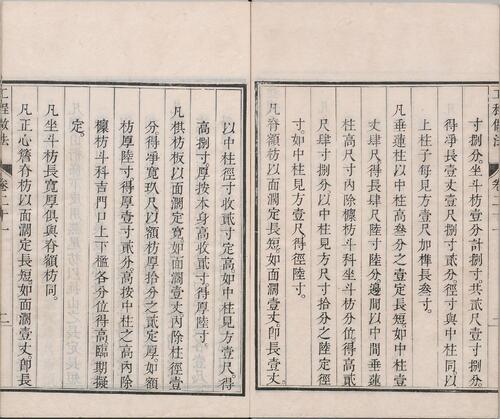 寸捌分。坐斗枋壹分計捌寸。共貳尺壹寸捌分。
得凈長壹丈壹尺捌寸貳分。徑寸與中柱同。以
上柱子每見方壹尺加榫長叁寸。
凡垂蓮柱以中柱高叁分之壹定長短如中柱壹
丈肆尺。得長肆尺陸寸陸分。邊間以中間垂蓮
柱高尺寸內除檁枋斗科坐斗枋分位得高貳
尺肆寸捌分。以中柱見方尺寸拾分之陸定徑
寸。如中柱見方壹尺得徑陸寸。
凡脊額枋以面濶定長短如面濶壹丈。內除壹丈
工程做法
卷二十一
以中柱徑寸收貳寸定高如中柱見方壹尺得
高捌寸厚按本身高收貳寸得厚陸寸
凡棋枋板以面濶定寬如面濶壹丈內除柱徑壹
分得凈寬玖尺以額枋厚拾分之貳定厚如額
枋厚陸寸得厚壹寸貳分高按中柱之高內除
檁枋斗科吉門口上下檻各分位得高臨期擬
定。
凡坐斗枋長寬厚俱與脊額枋同。
凡正心簷脊枋以面濶定長短如面濶壹丈。卽長
工程做法
卷二十一
二